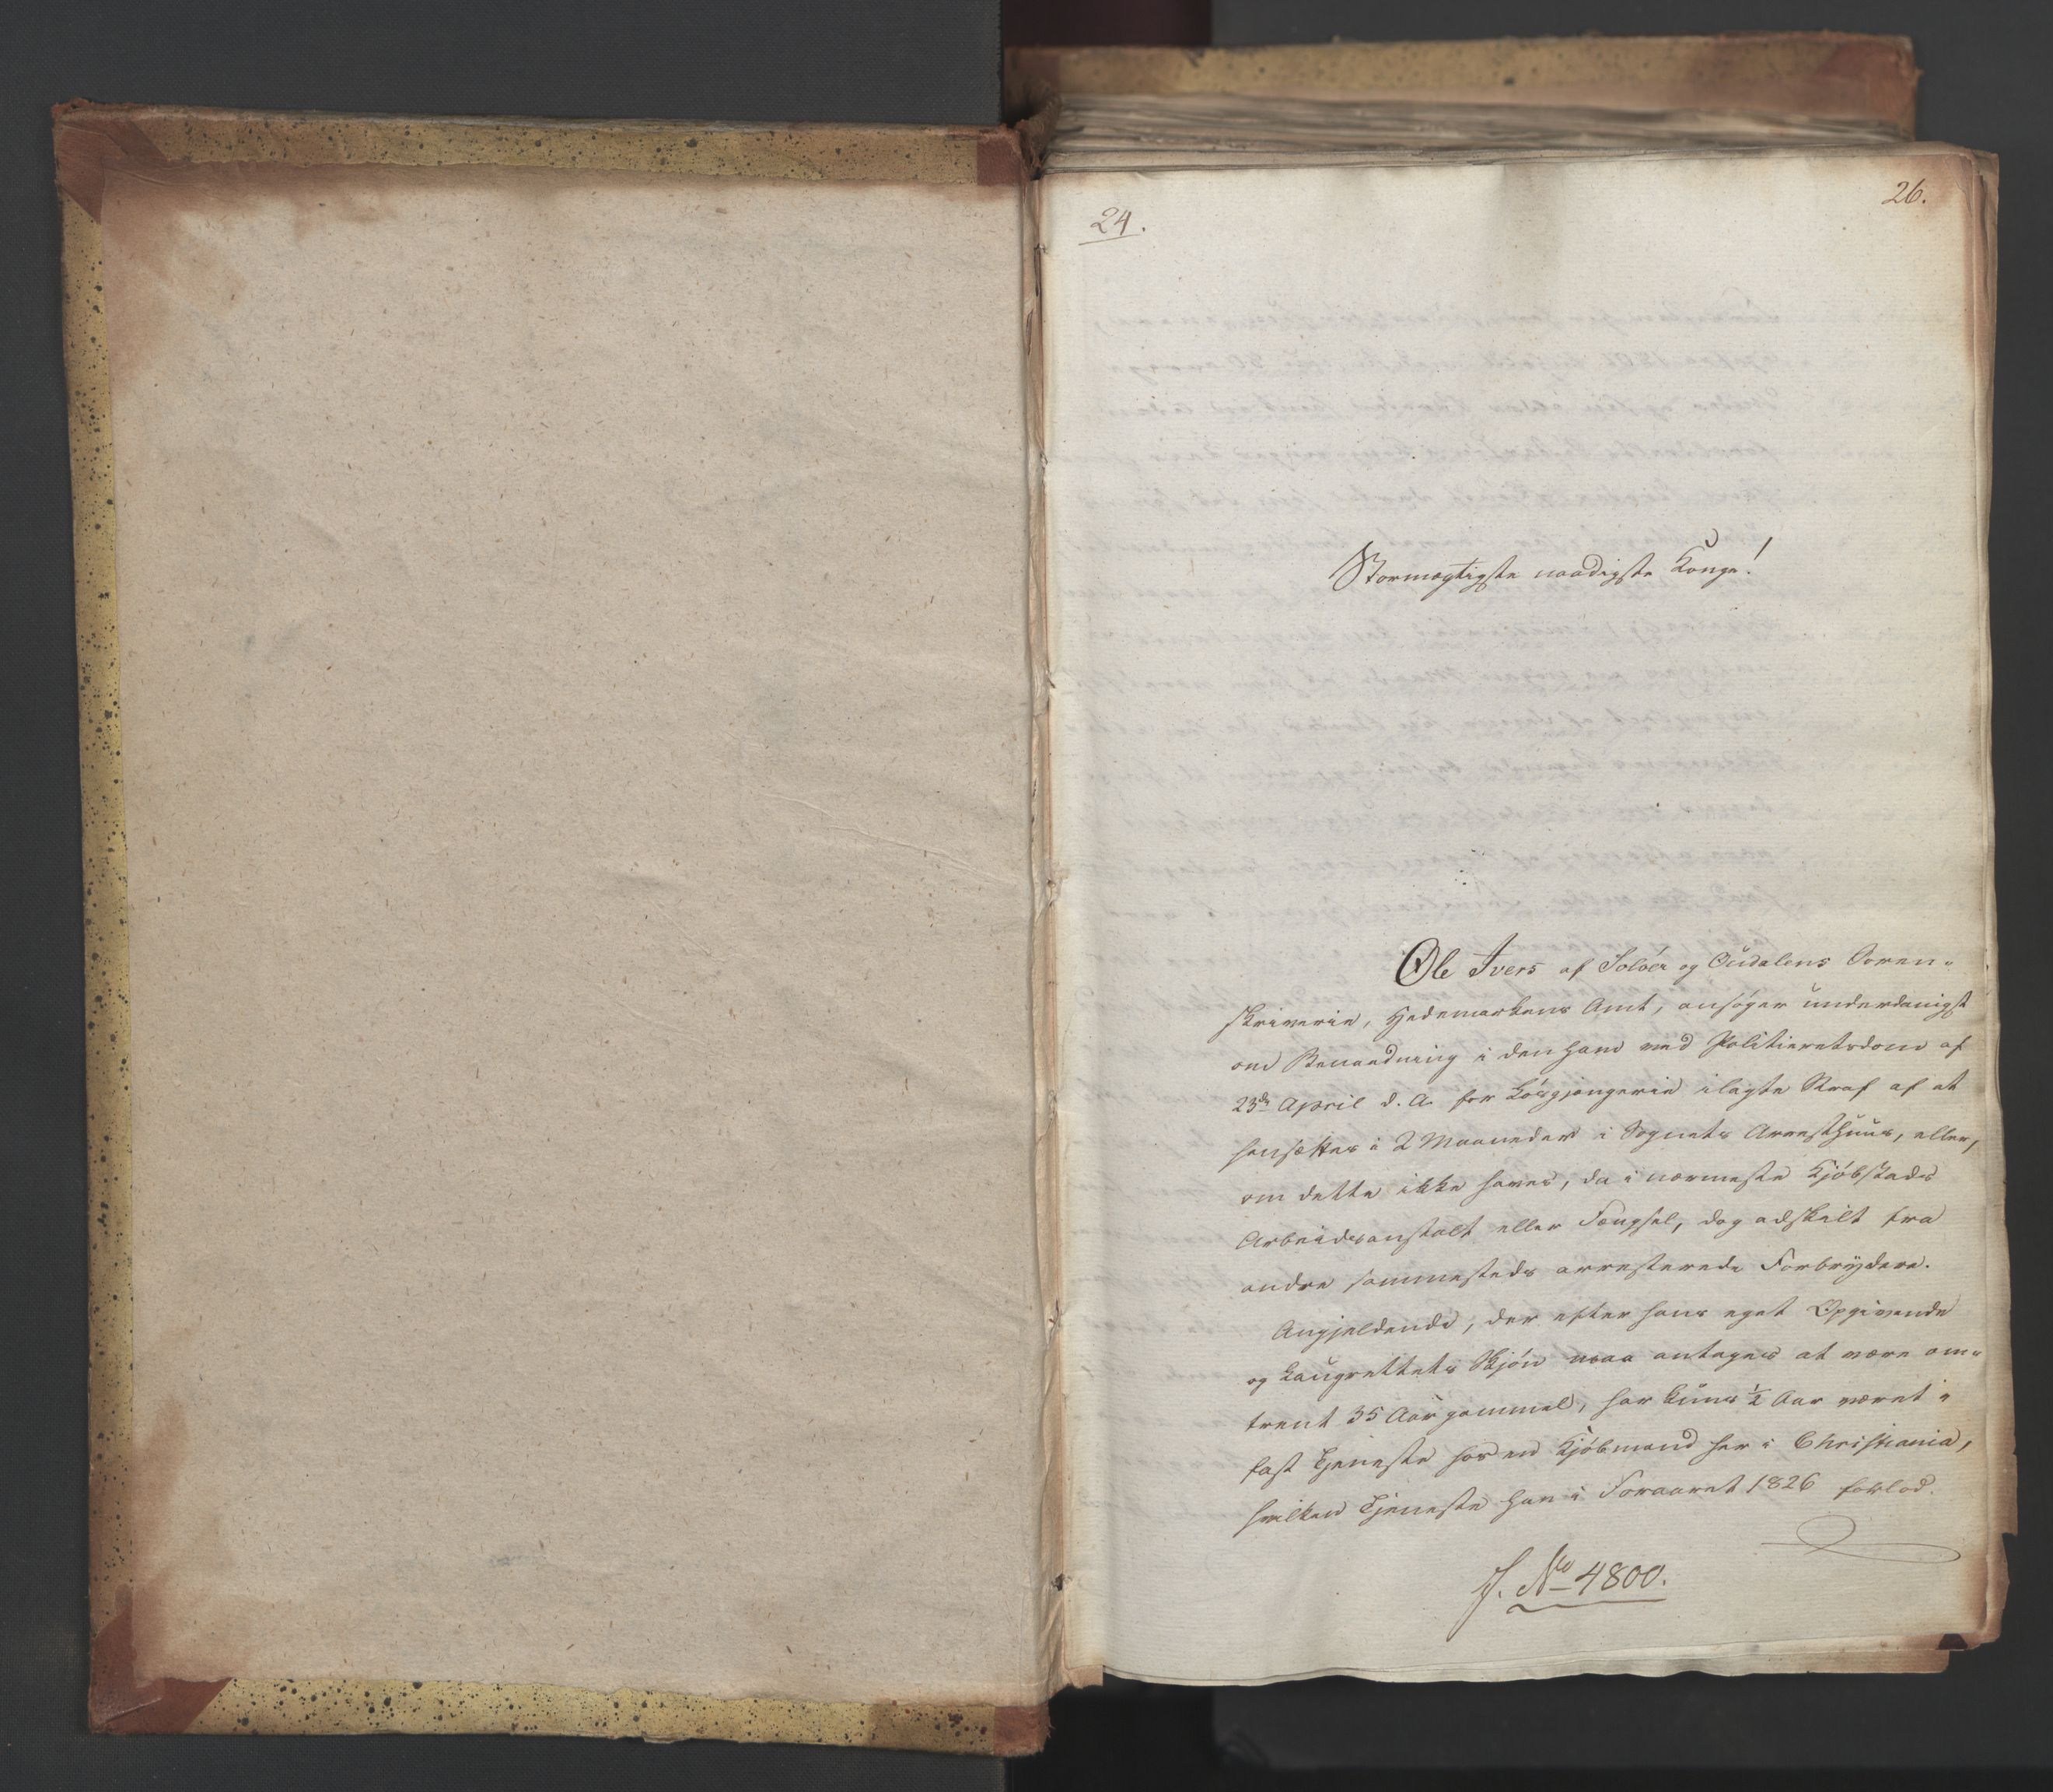 24.
26.
Stormægtigste naadigste Konge!
Ole Ivers af Solöer og Oudalens Soren-
skriverie, Hedemarkens Amt, ansøger underdanigst
om Benaadning i den ham ved Politieretsdom af
23de April d. A. for Løsgjængerie ilagte Straf af at
hensættes i 2 Maaneder i Sognets Arresthuus, eller,
om dette ikke haves, da i nærmeste Kjøbstads
Arbeidsanstalt eller Fængsel, dog adskilt fra
andre sammesteds arresterede Forbrydere.
Angjeldende, der efter hans eget Opgivende
og Laugrettets Skjøn maa antages at være om-
trent 35 Aar gammel, har kuns ½ Aar været i
fast Tjeneste hos en Kjøbmand her i Christiania,
hvilken Tjeneste han i Foraaret 1826 forlod.
J. No 4800.